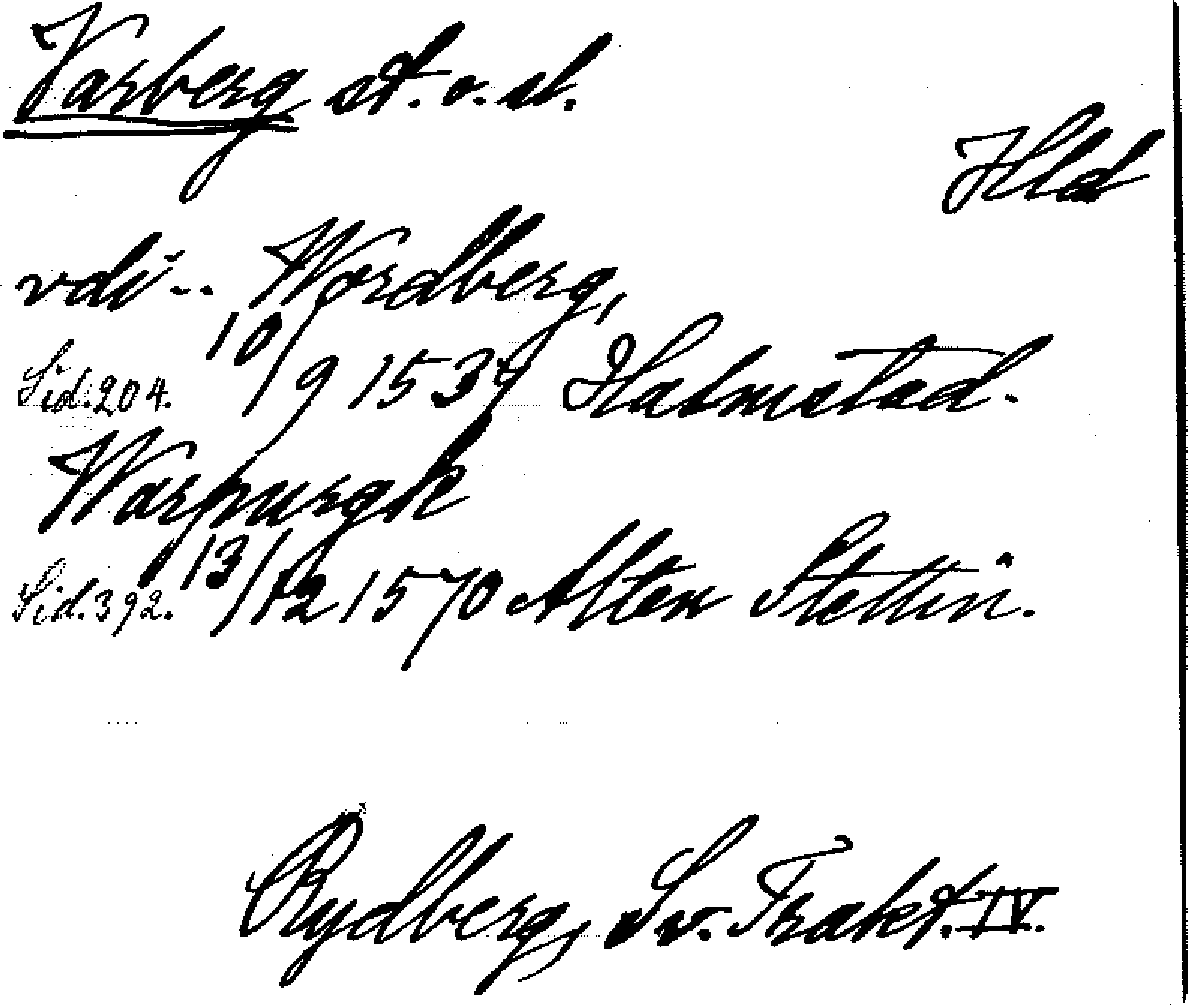 Varberg st. o. sl.
Hld
vdi -- Wordberg,
Sid. 204. 10/9 1534 Halmstad.
Warpurgk
Sid. 392. 13/12 1570 Alten Stettin.
Rydberg, Sv. Trakt. IV.